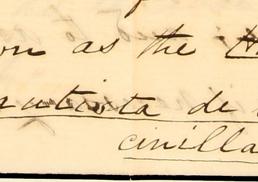 on as the
rutista de
cinilla